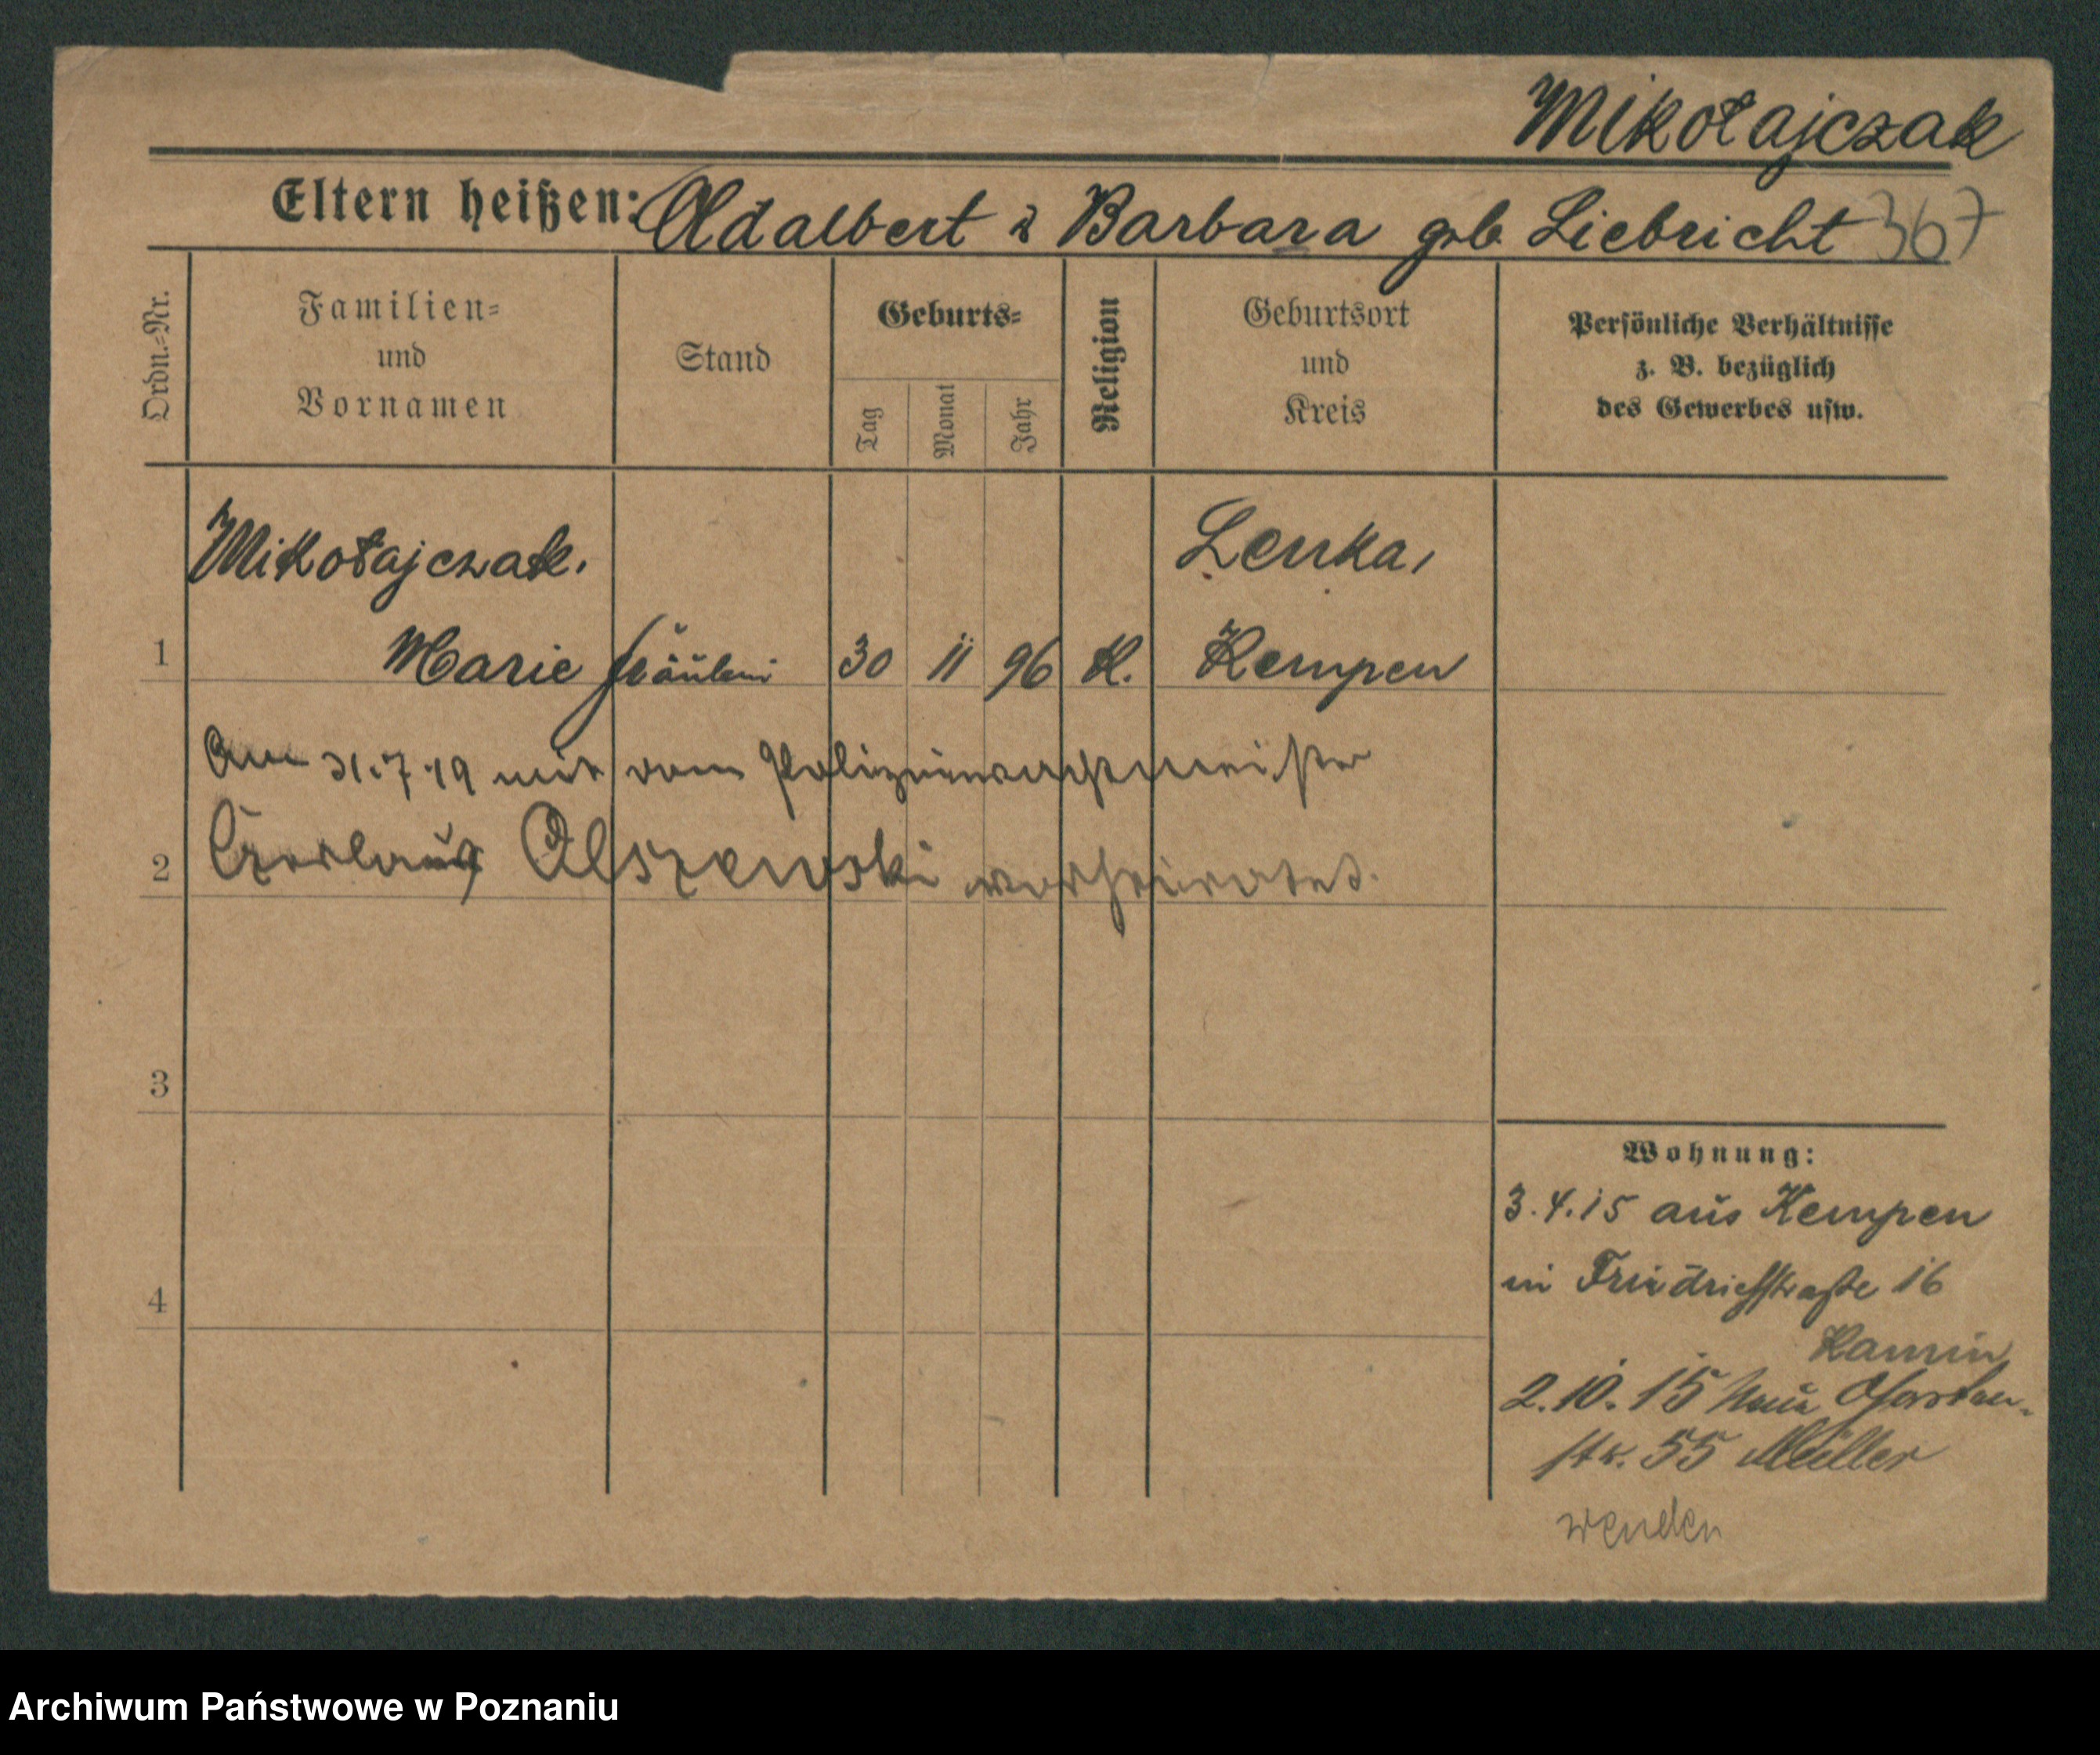 Mikołajczak
Eltern heißen: Adalbert & Barbara geb. Liebricht 367
Ordn.-Nr.
Familien-
und
Vornamen
Stand
Geburts-
Tag
Monat
Jahr
Religion
Geburtsort
und
Kreis
Persönliche Verhältnisse
z. B. bezüglich
des Gewerbes usw.
Mikołajczak. Lenka,
1 Marie Fräulein 30 11 96 K. Kempen
Am 31.7.19 mit dem Polizeiwachtmeister
2 Olszewski verheiratet.
3
4
Wohnung:
3.4.15 aus Kempen
in Friedrichstraße 16
Kamin
2.10.15 Neue Garten-
str. 55 Müller
wenden
Archiwum Państwowe w Poznaniu